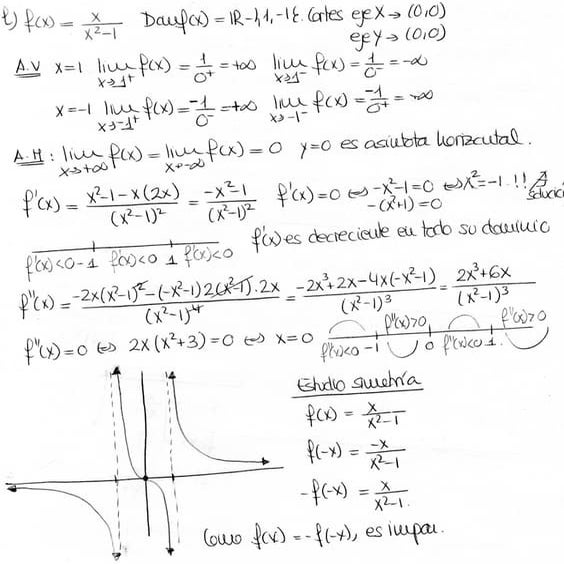 l) f(x) = x/(x²-1)   Dom f(x) = ℝ-{1,-1}. Cortes eje X → (0,0)
eje Y → (0,0)
A.V x=1 lim x→1⁺ f(x) = 1/0⁺ = +∞ lim x→1⁻ f(x) = 1/0⁻ = -∞
x=-1 lim x→-1⁺ f(x) = -1/0⁻ = +∞ lim x→-1⁻ f(x) = -1/0⁺ = -∞
A.H: lim x→+∞ f(x) = lim x→-∞ f(x) = 0 y=0 es asíntota horizontal.
f'(x) = (x²-1-x(2x))/(x²-1)² = (-x²-1)/(x²-1)² f'(x)=0 ⇔ -x²-1=0 ⇔ x²=-1 !! ∄
-(x²+1)=0 solución
f'(x)<0 -1 f'(x)<0 1 f'(x)<0 f'(x) es decreciente en todo su dominio
f''(x) = (-2x(x²-1)²-(-x²-1)2(x²-1)·2x)/(x²-1)⁴ = (-2x³+2x-4x(-x²-1))/(x²-1)³ = (2x³+6x)/(x²-1)³
f''(x)=0 ⇔ 2x(x²+3)=0 ⇔ x=0 f''(x)<0 -1 f''(x)>0 0 f''(x)<0 1 f''(x)>0
Estudio simetría
f(x) = x/(x²-1)
f(-x) = -x/(x²-1)
-f(-x) = x/(x²-1).
Como f(x) = -f(-x), es impar.